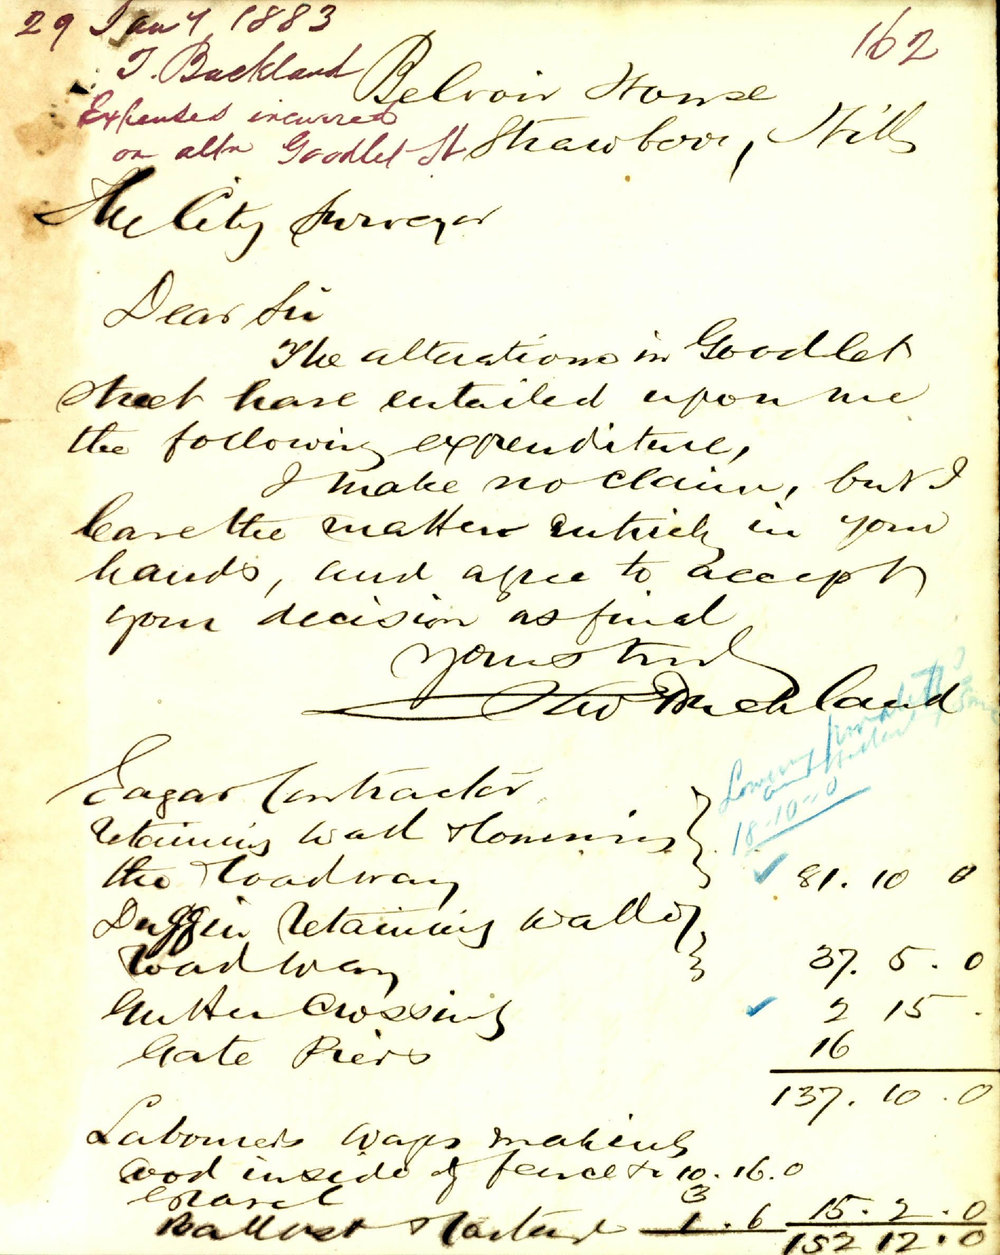 29 Jany 1883
162
T. Buckland
Expenses incurred
on altn Goodlet St
Belvoir House
Strawberry Hills
The City Surveyor
Dear Sir
The alterations in Goodlet
street have entailed upon me
the following expenditure,
I make no claim, but I
leave the matter entirely in your
hands, and agree to accept
your decision as final
Yours truly
Thos Buckland
Lowering
and
18-10-0
Eagar Contractor
retaining wall & lowering
the roadway 81. 10 0
Duffin retaining wall &
roadway 37. 5. 0
Gutter Crossing 2 15 .
Gate Piers 16
137. 10. 0
Labourers wages making
good inside of fence & 10. 16. 0
Gravel 3
Ballast & 1. 6 15. 2. 0
152 12. 0